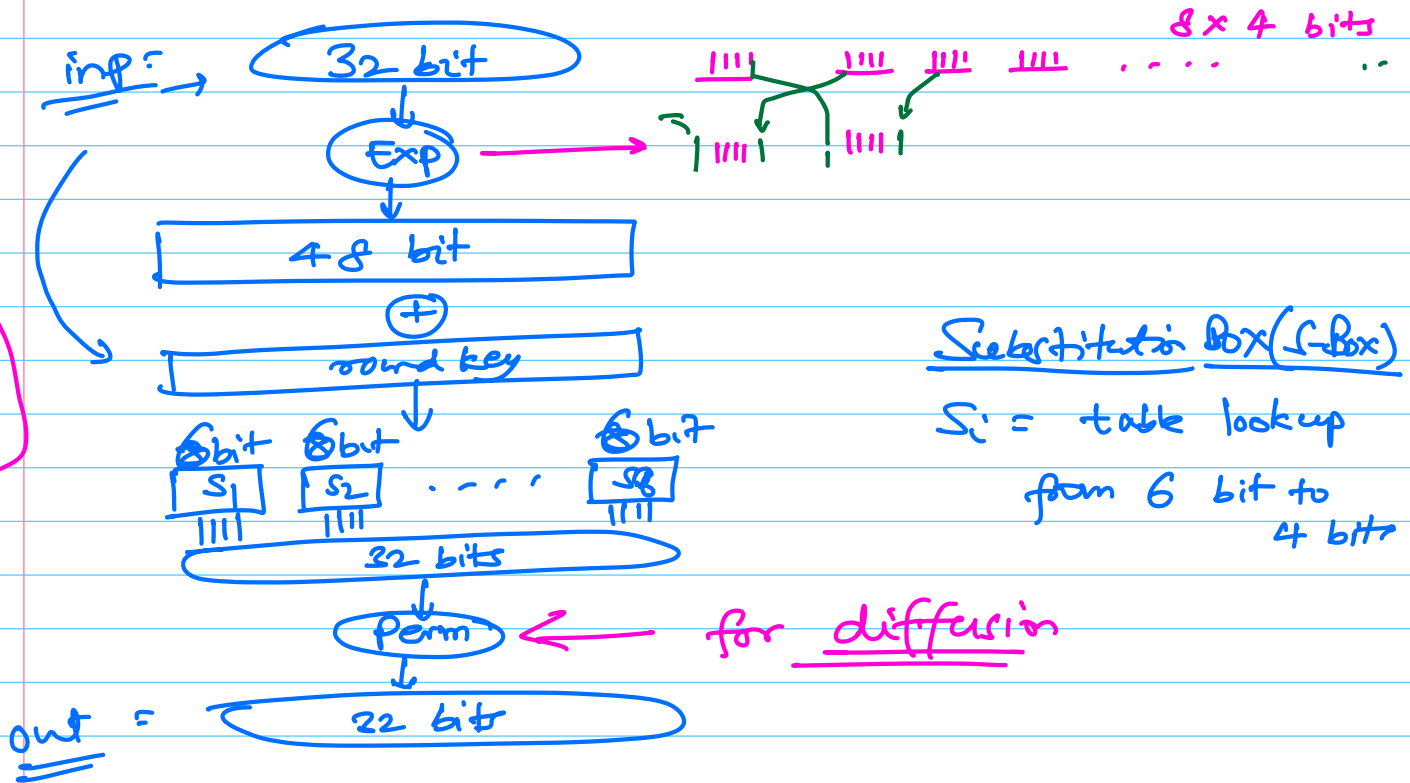 8 x 4 bits
inp =
32 bit
Exp
48 bit
+
round key
6bit 6bit 6bit
S1 S2 .... S8
32 bits
Perm
for diffusion
out =
32 bits
Substitution Box (S-Box)
Si = table lookup
from 6 bit to
4 bits